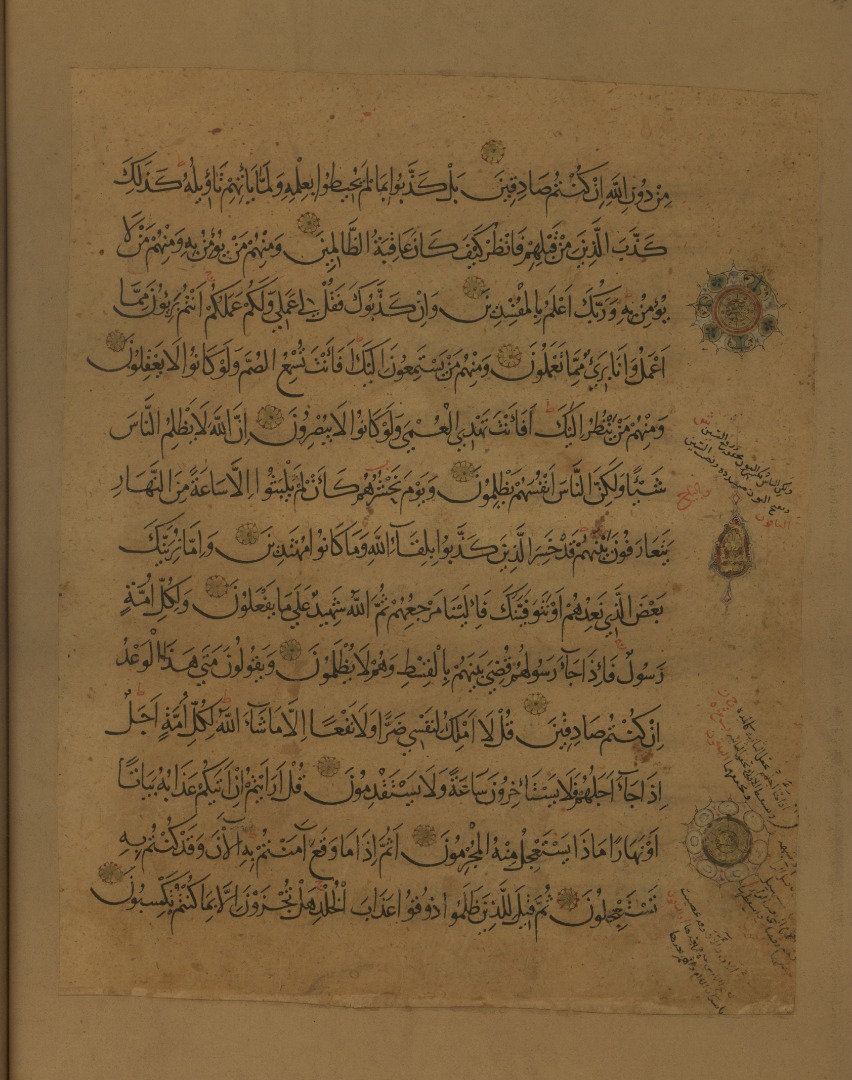 مِنْ دُونِ اللَّهِ إِنْ كُنْتُمْ صَادِقِينَ بَلْ كَذَّبُوا بِمَا لَمْ يُحِيطُوا بِعِلْمِهِ وَلَمَّا يَأْتِهِمْ تَأْوِيلُهُ كَذَلِكَ
كَذَّبَ الَّذِينَ مِنْ قَبْلِهِمْ فَانْظُرْ كَيْفَ كَانَ عَاقِبَةُ الظَّالِمِينَ وَمِنْهُمْ مَنْ يُؤْمِنُ بِهِ وَمِنْهُمْ مَنْ لَا
يُؤْمِنُ بِهِ وَرَبُّكَ أَعْلَمُ بِالْمُفْسِدِينَ وَإِنْ كَذَّبُوكَ فَقُلْ لِي عَمَلِي وَلَكُمْ عَمَلُكُمْ أَنْتُمْ بَرِيئُونَ مِمَّا
أَعْمَلُ وَأَنَا بَرِيءٌ مِمَّا تَعْمَلُونَ وَمِنْهُمْ مَنْ يَسْتَمِعُونَ إِلَيْكَ أَفَأَنْتَ تُسْمِعُ الصُّمَّ وَلَوْ كَانُوا لَا يَعْقِلُونَ
وَمِنْهُمْ مَنْ يَنْظُرُ إِلَيْكَ أَفَأَنْتَ تَهْدِي الْعُمْيَ وَلَوْ كَانُوا لَا يُبْصِرُونَ إِنَّ اللَّهَ لَا يَظْلِمُ النَّاسَ
شَيْئًا وَلَكِنَّ النَّاسَ أَنْفُسَهُمْ يَظْلِمُونَ وَيَوْمَ نَحْشُرُهُمْ كَأَنْ لَمْ يَلْبَثُوا إِلَّا سَاعَةً مِنَ النَّهَارِ
يَتَعَارَفُونَ بَيْنَهُمْ قَدْ خَسِرَ الَّذِينَ كَذَّبُوا بِلِقَاءِ اللَّهِ وَمَا كَانُوا مُهْتَدِينَ وَإِمَّا نُرِيَنَّكَ
بَعْضَ الَّذِي نَعِدُهُمْ أَوْ نَتَوَفَّيَنَّكَ فَإِلَيْنَا مَرْجِعُهُمْ ثُمَّ اللَّهُ شَهِيدٌ عَلَى مَا يَفْعَلُونَ وَلِكُلِّ أُمَّةٍ
رَسُولٌ فَإِذَا جَاءَ رَسُولُهُمْ قُضِيَ بَيْنَهُمْ بِالْقِسْطِ وَهُمْ لَا يُظْلَمُونَ وَيَقُولُونَ مَتَى هَذَا الْوَعْدُ
إِنْ كُنْتُمْ صَادِقِينَ قُلْ لَا أَمْلِكُ لِنَفْسِي ضَرًّا وَلَا نَفْعًا إِلَّا مَا شَاءَ اللَّهُ لِكُلِّ أُمَّةٍ أَجَلٌ
إِذَا جَاءَ أَجَلُهُمْ فَلَا يَسْتَأْخِرُونَ سَاعَةً وَلَا يَسْتَقْدِمُونَ قُلْ أَرَأَيْتُمْ إِنْ أَتَيكُمْ عَذَابُهُ بَيَاتًا
أَوْ نَهَارًا مَاذَا يَسْتَعْجِلُ مِنْهُ الْمُجْرِمُونَ أَثُمَّ إِذَا مَا وَقَعَ آمَنْتُمْ بِهِ آلْآنَ وَقَدْ كُنْتُمْ بِهِ
تَسْتَعْجِلُونَ ثُمَّ قِيلَ لِلَّذِينَ ظَلَمُوا ذُوقُوا عَذَابَ الْخُلْدِ هَلْ تُجْزَوْنَ إِلَّا بِمَا كُنْتُمْ تَكْسِبُونَ